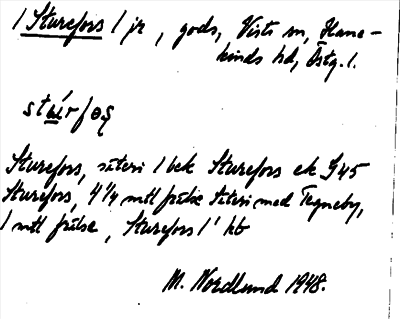 / Sturefors / jr, gods, Vists sn, Hane-
kinds hd, Östg. l.
Sturefors, säteri 1 bek Sturefors ek G45
Sturefors, 4 1/4 mtl frälse säteri med Tegneby,
1 mtl frälse, Sturefors 1' kb
M. Nordlund 1948.